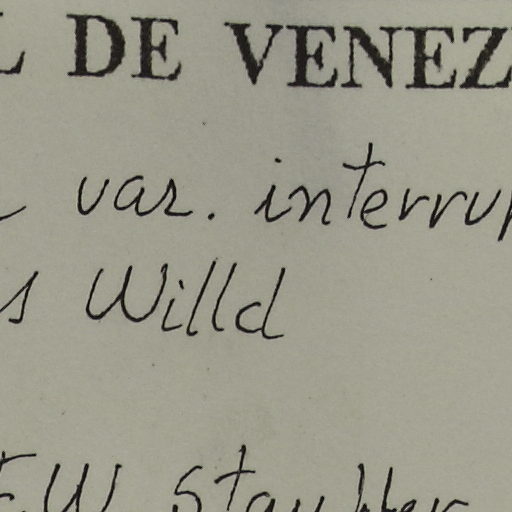 L DE VENEZ
var. interrup
s Willd
EW Stau